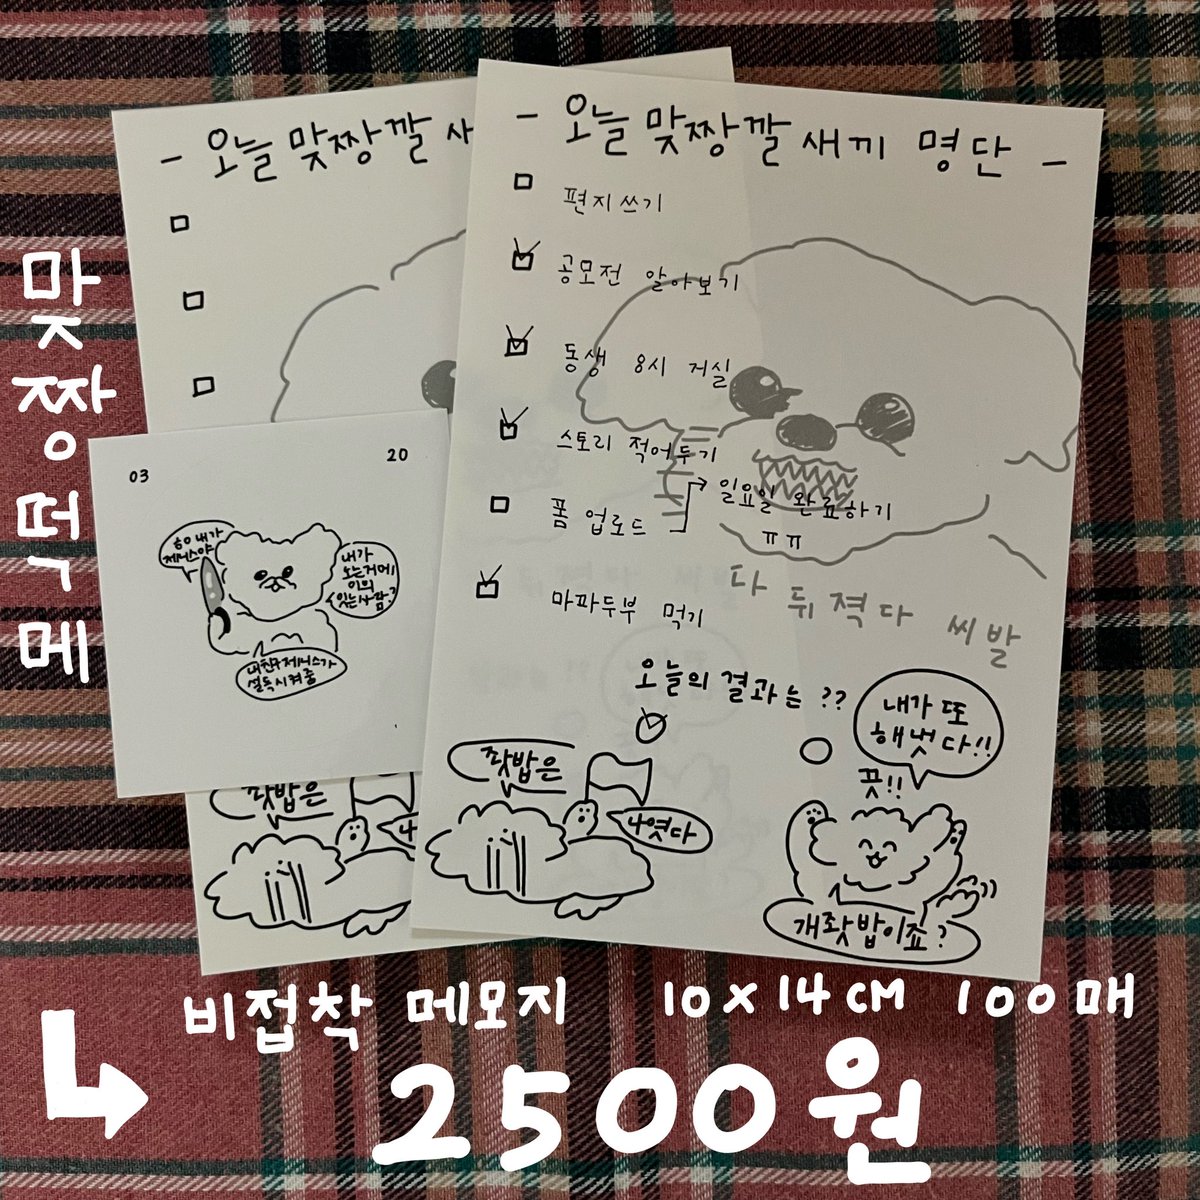 - 오늘 맞짱깔 새끼 명단 -
편지쓰기
공모전 알아보기
동생 8시 거실
스토리 적어두기
폼 업로드
일요일 완료하기
ㅠㅠ
마파두부 먹기
다 뒤졌다 씨발
오늘의 결과는 ??
좟밥은
나였다
내가 또
해냈다!!
끗!!
개좟밥이죠?
- 오늘 맞짱깔 새
좟밥은
나
03
20
내가
제니스야
내가
노는거에
이의
있는사람?
내친구제니스가
설득시켜줌
맞짱떡메
비접착 메모지 10×14CM 100매
2500원